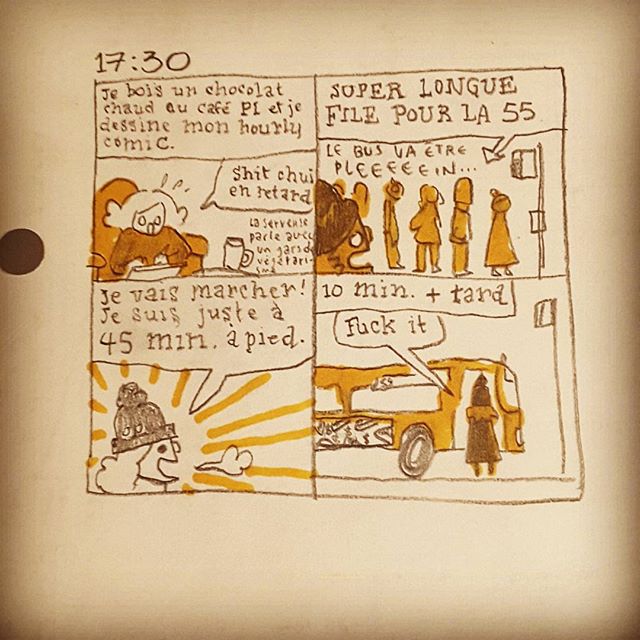 17:30
Je bois un chocolat
chaud au café PI et je
dessine mon hourly
comic.
Shit chui
en retard
La serveuse
parle avec
un gars de
végétari-
sme
SUPER LONGUE
FILE POUR LA 55
LE BUS VA ÊTRE
PLEEEEEIN...
Je vais marcher!
Je suis juste à
45 min. à pied.
10 min. + tard
Fuck it
55